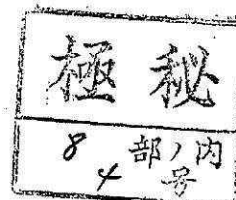 極秘
8部ノ内
4号